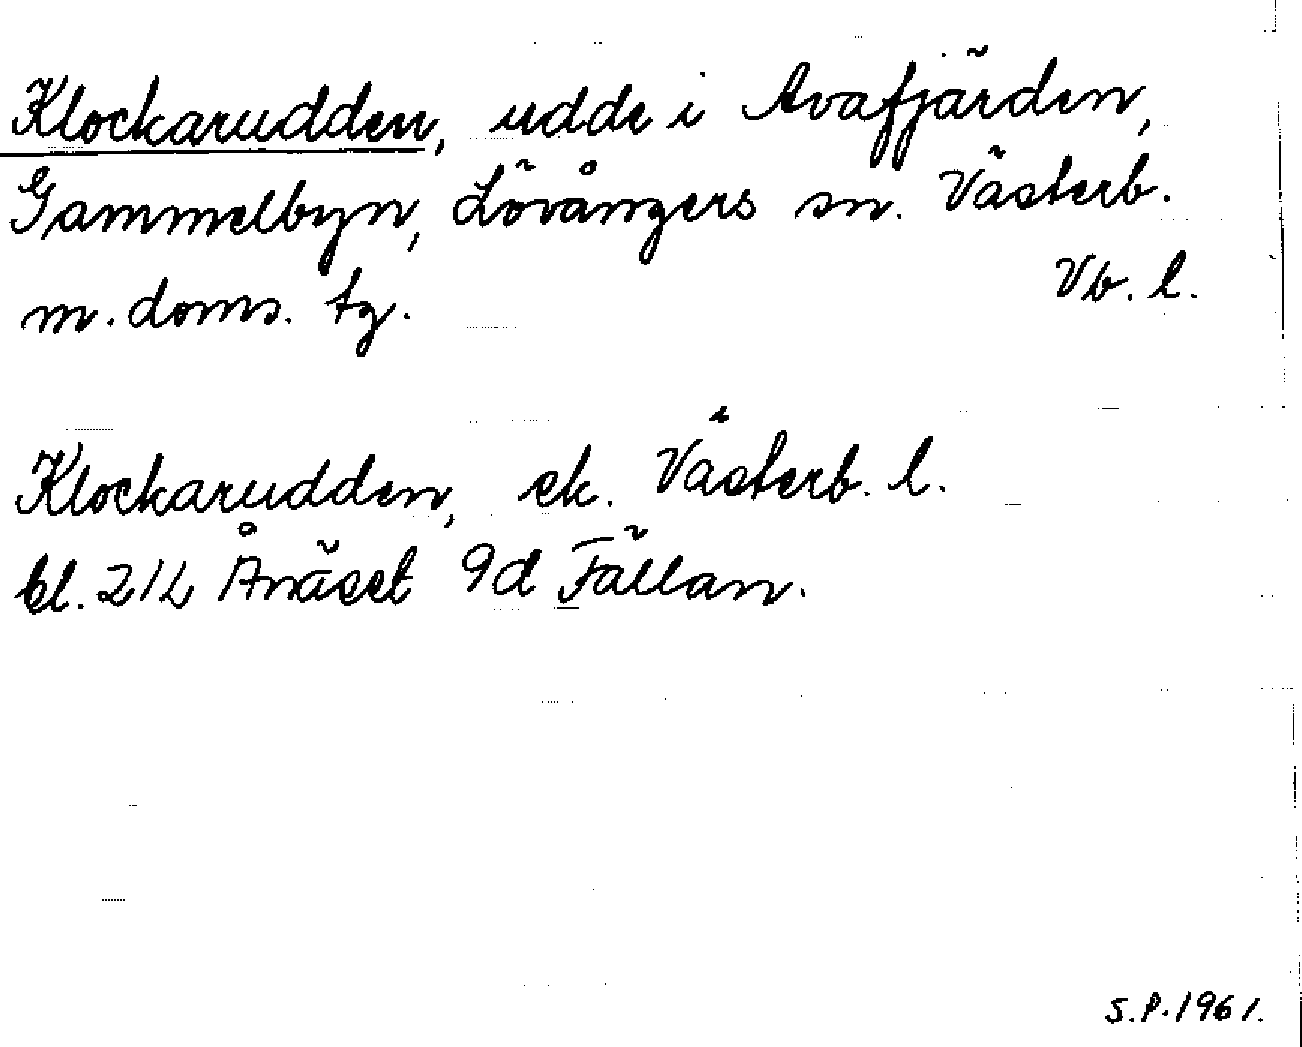 Klockarudden, udde i Avafjärden,
Gammelbyn, Lövångers sn. Västerb.
m. doms. tg. Vb. l.
Klockarudden, ek. Västerb. l.
bl. 21L Ånäset 9d Fällan.
S.P. 1961.